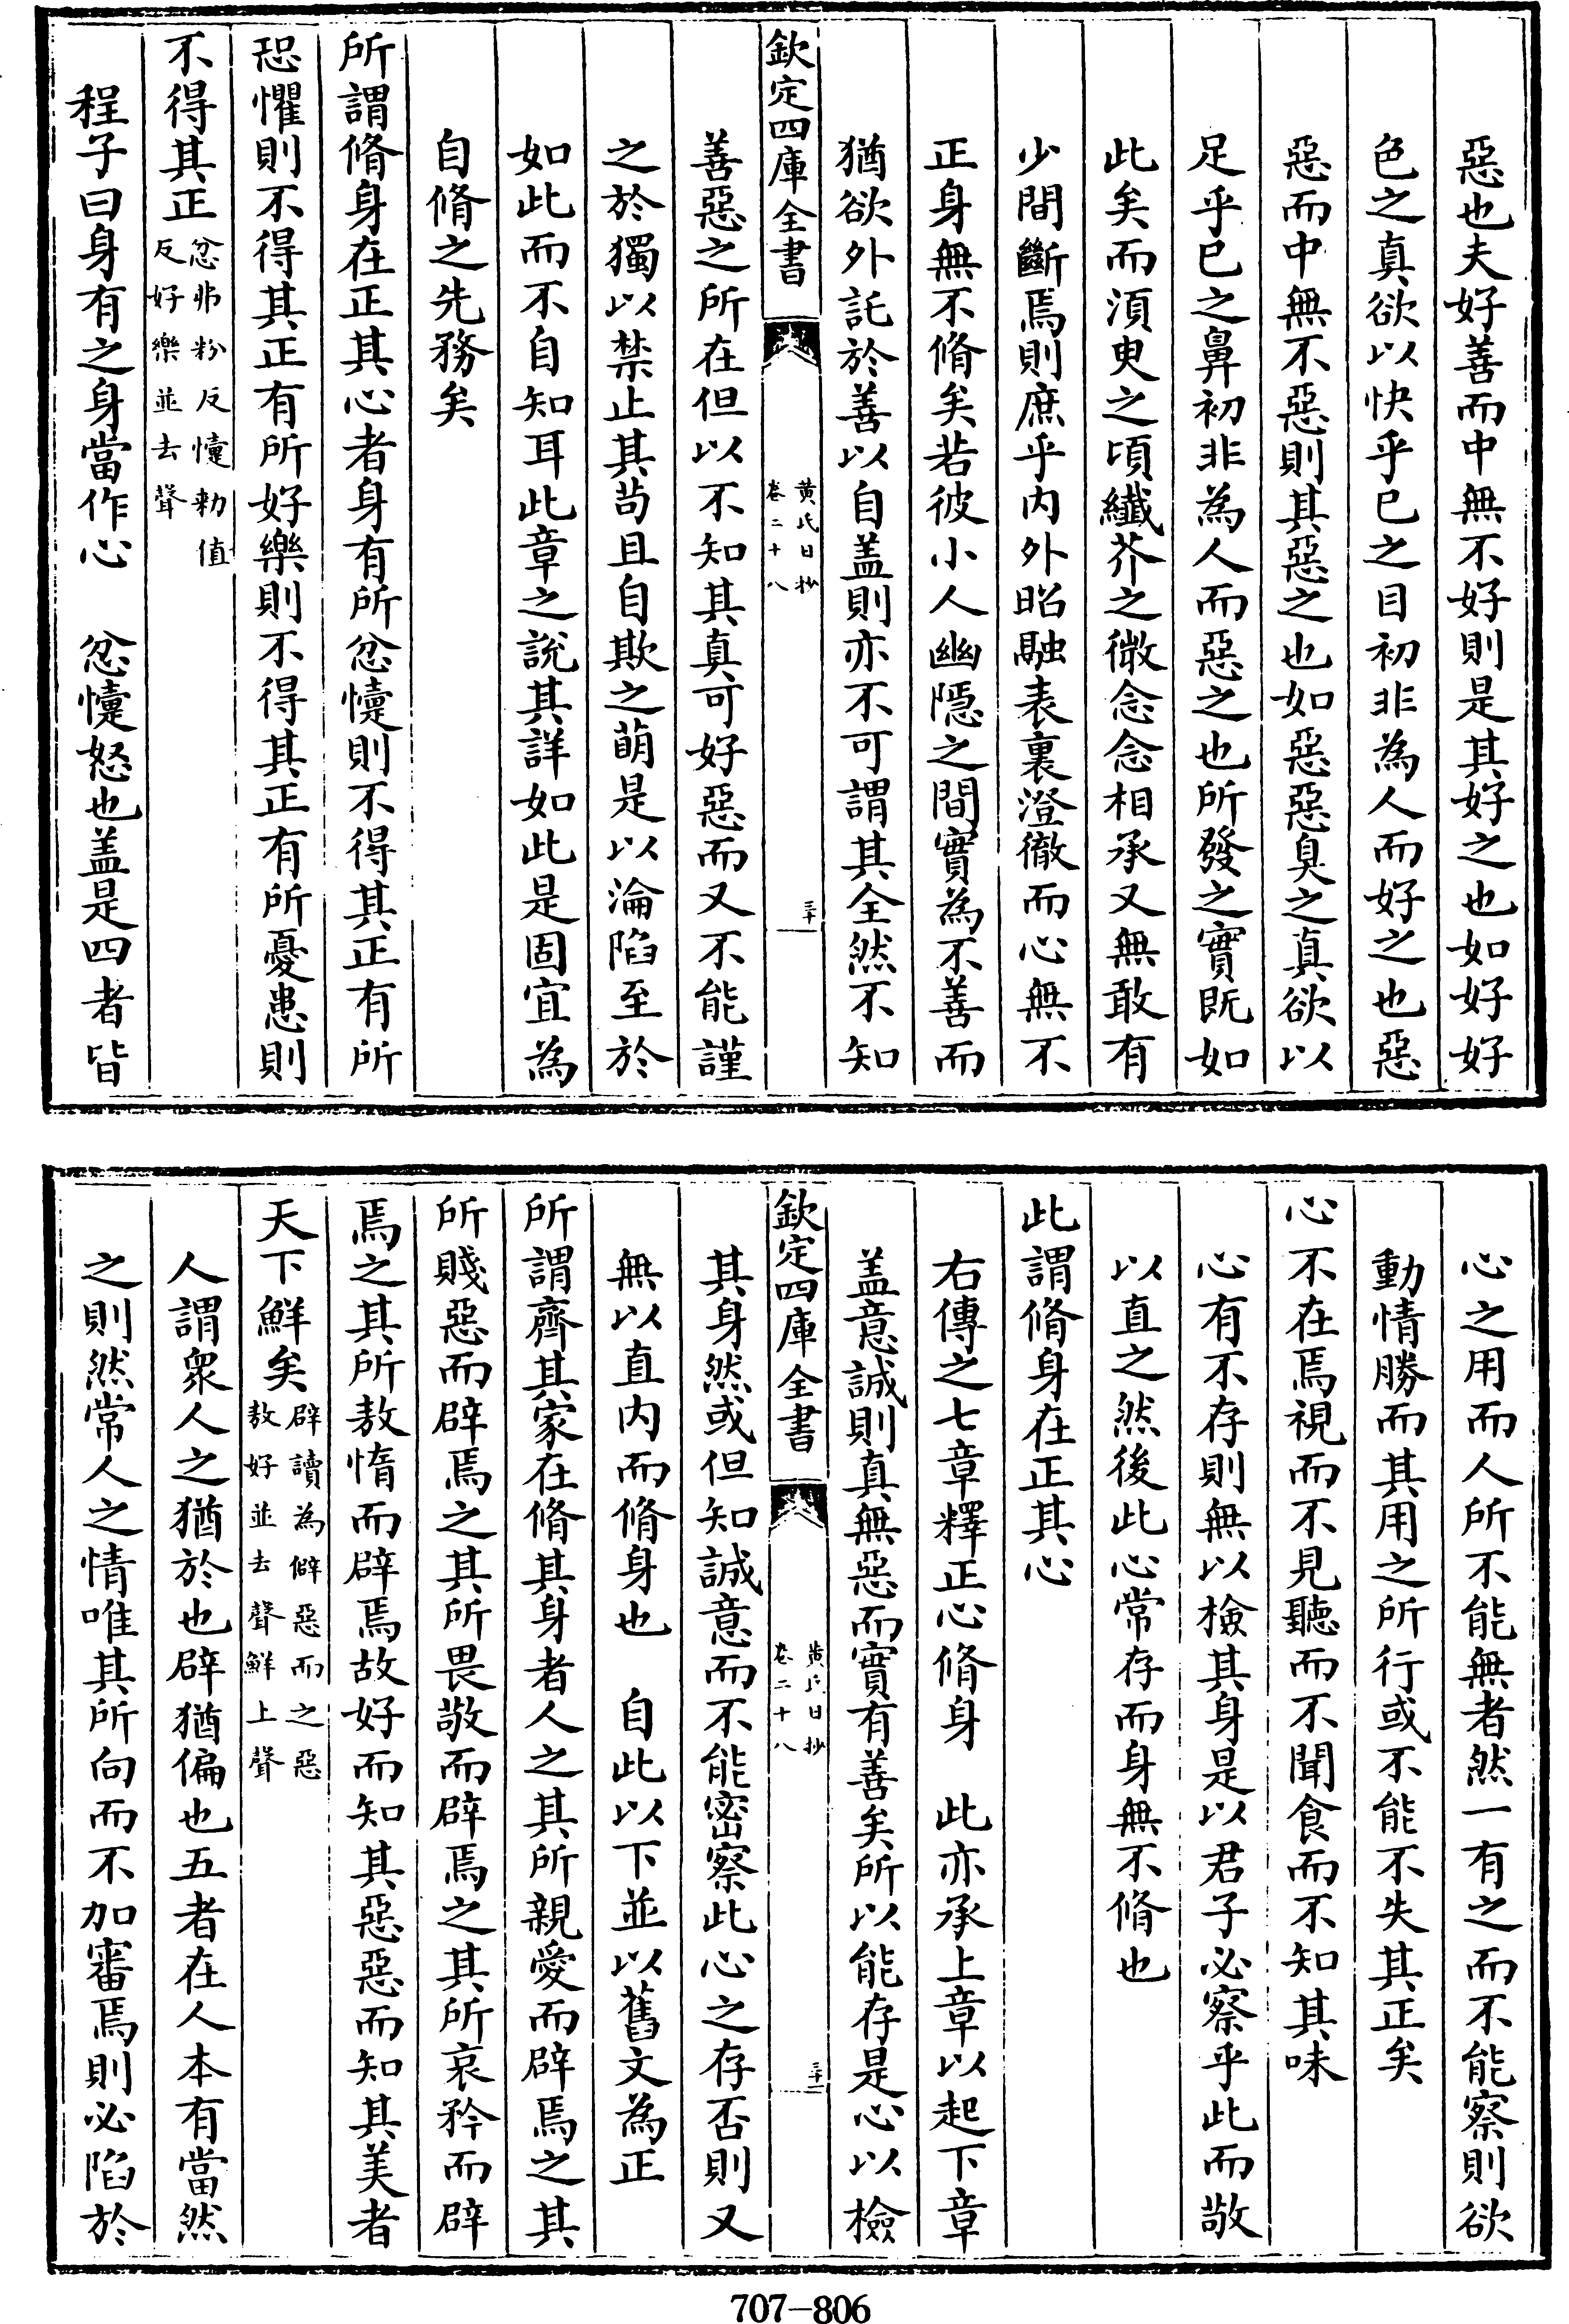 惡也夫好善而中無不好則是其好之也如好好
色之真欲以快乎已之目初非為人而好之也惡
惡而中無不惡則其惡之也如惡惡臭之真欲以
足乎已之鼻初非為人而惡之也所發之實既如
此矣而湏臾之頃纎芥之微念念相承又無敢有
少間斷焉則庶乎内外昭融表裏澄徹而心無不
正身無不脩矣若彼小人幽隱之間實為不善而
猶欲外託於善以自盖則亦不可謂其全然不知
欽定四庫全書
黄氏日抄
卷二十八
三十
善惡之所在但以不知其真可好惡而又不能謹
之於獨以禁止其茍且自欺之萌是以淪陷至於
如此而不自知耳此章之說其詳如此是固宜為
自脩之先務矣
所謂脩身在正其心者身有所忿懥則不得其正有所
恐懼則不得其正有所好樂則不得其正有所憂患則
不得其正忿弗粉反懥勅值
反好樂並去聲
程子曰身有之身當作心　忿懥怒也盖是四者皆
心之用而人所不能無者然一有之而不能察則欲
動情勝而其用之所行或不能不失其正矣
心不在焉視而不見聽而不聞食而不知其味
心有不存則無以檢其身是以君子必察乎此而敬
以直之然後此心常存而身無不脩也
此謂脩身在正其心
右傳之七章釋正心脩身　此亦承上章以起下章
盖意誠則真無惡而實有善矣所以能存是心以檢
欽定四庫全書
黄氏日抄
卷二十八
三十一
其身然或但知誠意而不能密察此心之存否則又
無以直内而脩身也　自此以下並以舊文為正
所謂齊其家在脩其身者人之其所親愛而辟焉之其
所賤惡而辟焉之其所畏敬而辟焉之其所哀矜而辟
焉之其所敖惰而辟焉故好而知其惡惡而知其美者
天下鮮矣辟讀為僻惡而之惡
敖好並去聲鮮上聲
人謂衆人之猶於也辟猶偏也五者在人本有當然
之則然常人之情唯其所向而不加審焉則必陷於
707-806